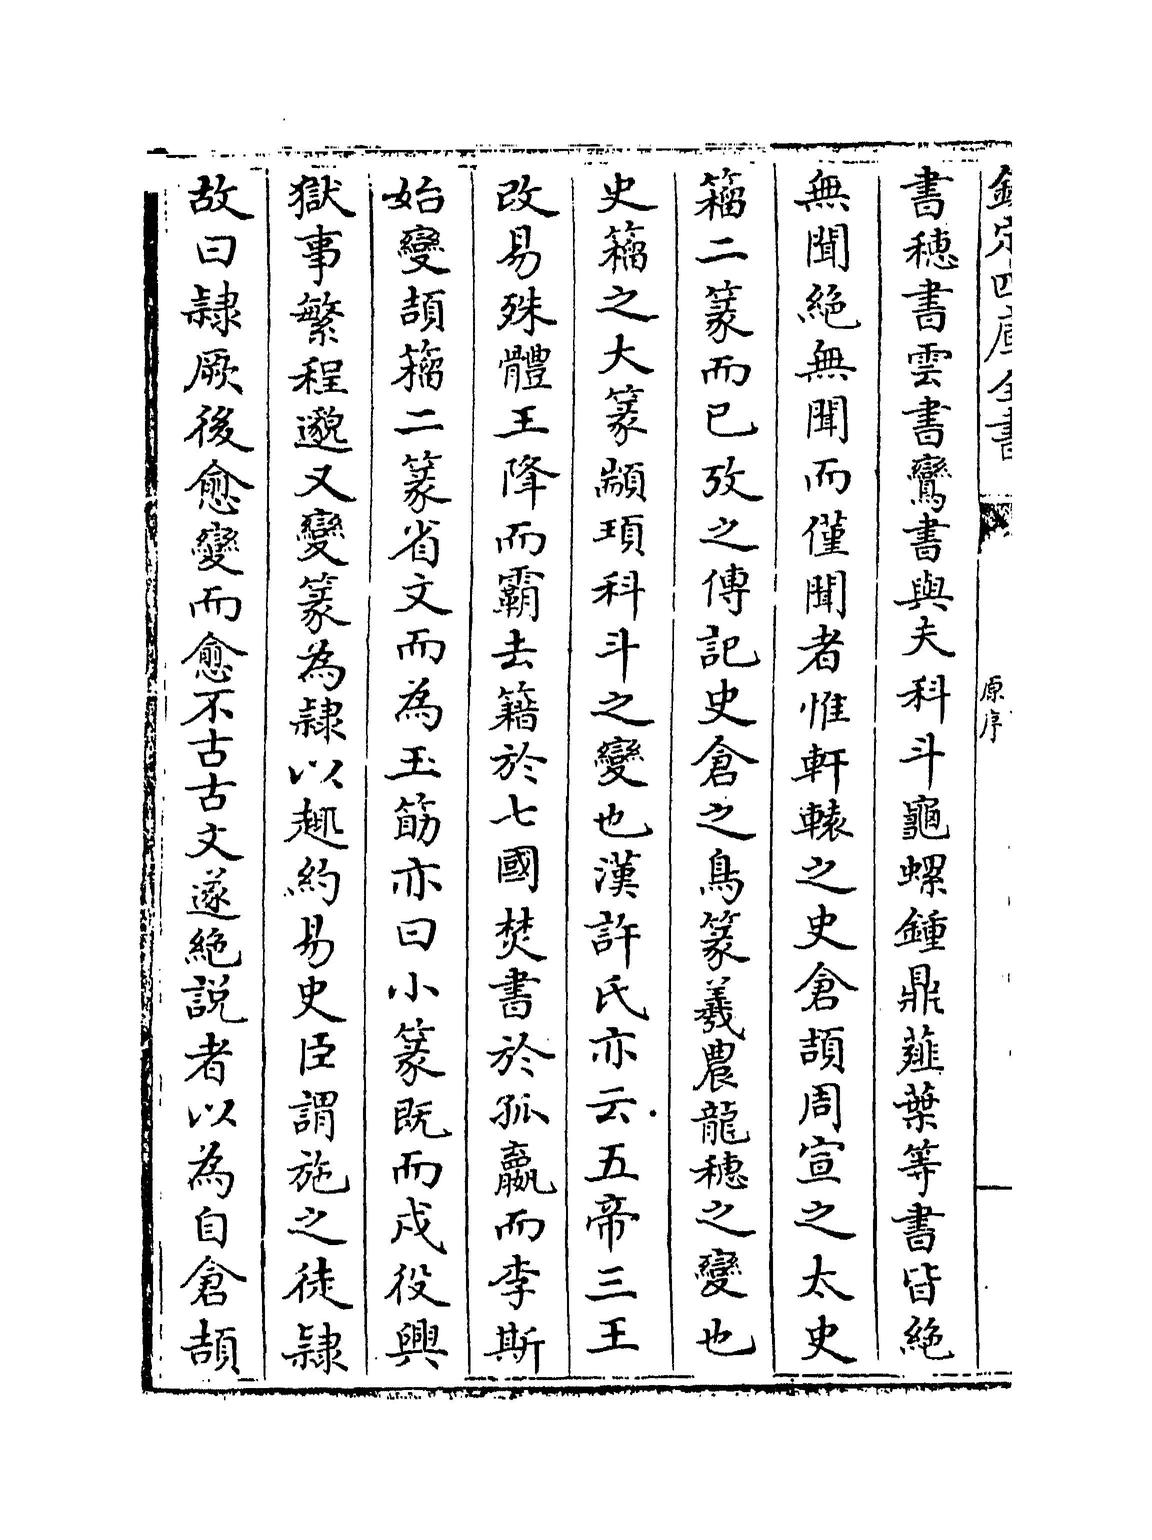 欽定四庫全書
原序
書穗書雲書鸞書與夫科斗龜螺鍾鼎薤葉等書皆絶
無聞絶無聞而僅聞者惟軒轅之史倉頡周宣之太史
籀二篆而已攷之傳記史倉之鳥篆羲農龍穗之變也
史籀之大篆顓頊科斗之變也漢許氏亦云五帝三王
改易殊體王降而霸去籍於七國焚書於孤嬴而李斯
始變頡籀二篆省文而為玉筯亦曰小篆既而戍役興
獄事繁程邈又變篆為隷以趣約易史臣謂施之徒隷
故曰隷厥後愈變而愈不古古文遂絶説者以為自倉頡